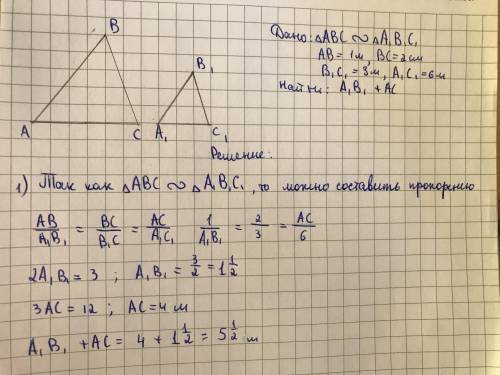 B
B₁
A
C
A₁
C₁
Дано: △ABC ∾ △A₁B₁C₁
AB = 1м, BC = 2см
B₁C₁ = 3м, A₁C₁ = 6м
Найти: A₁B₁ + AC
Решение:
1) Так как △ABC ∾ △A₁B₁C₁, то можно составить пропорцию
AB/A₁B₁ = BC/B₁C = AC/A₁C₁ 1/A₁B₁ = 2/3 = AC/6
2A₁B₁ = 3 ; A₁B₁ = 3/2 = 1 1/2
3AC = 12 ; AC = 4 м
A₁B₁ + AC = 4 + 1 1/2 = 5 1/2 м